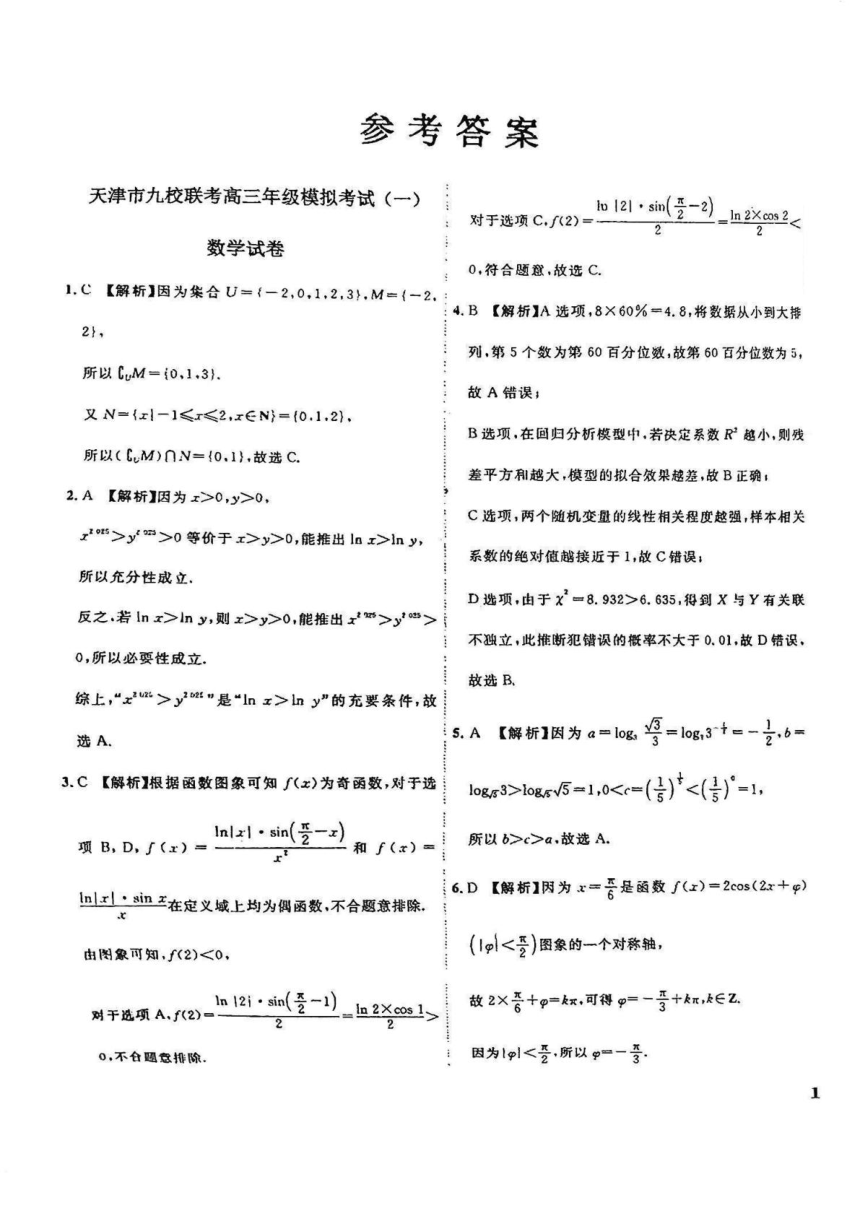 参考答案
天津市九校联考高三年级模拟考试(一)
数学试卷
1.C 【解析】因为集合 U={-2,0,1,2,3},M={-2,
2},
所以∁UM={0,1,3}.
又 N={x|-1≤x≤2,x∈N}={0,1,2},
所以(∁UM)∩N={0,1},故选 C.
2.A 【解析】因为 x>0,y>0,
x^{2 025}>y^{2 025}>0 等价于 x>y>0,能推出 ln x>ln y,
所以充分性成立.
反之,若 ln x>ln y,则 x>y>0,能推出 x^{2 025}>y^{2 025}>
0,所以必要性成立.
综上,“x^{2 025}>y^{2 025}”是“ln x>ln y”的充要条件,故
选 A.
3.C 【解析】根据函数图象可知 f(x)为奇函数,对于选
项 B,D,f(x)=\frac{ln|x|·sin(\frac{π}{2}-x)}{x^2} 和 f(x)=
\frac{ln|x|·sin x}{x}在定义域上均为偶函数,不合题意排除.
由图象可知,f(2)<0,
对于选项 A,f(2)=\frac{ln |2|·sin(\frac{π}{2}-1)}{2}=\frac{ln 2×cos 1}{2}>
0,不合题意排除.
对于选项 C,f(2)=\frac{ln |2|·sin(\frac{π}{2}-2)}{2}=\frac{ln 2×cos 2}{2}<
0,符合题意,故选 C.
4.B 【解析】A 选项,8×60%=4.8,将数据从小到大排
列,第 5 个数为第 60 百分位数,故第 60 百分位数为 5,
故 A 错误;
B 选项,在回归分析模型中,若决定系数 R² 越小,则残
差平方和越大,模型的拟合效果越差,故 B 正确;
C 选项,两个随机变量的线性相关程度越强,样本相关
系数的绝对值越接近于 1,故 C 错误;
D 选项,由于 χ²=8.932>6.635,得到 X 与 Y 有关联
不独立,此推断犯错误的概率不大于 0.01,故 D 错误.
故选 B.
5.A 【解析】因为 a=log_3 \frac{\sqrt{3}}{3}=log_3 3^{-\frac{1}{2}}=-\frac{1}{2},b=
log_{\sqrt{5}}3>log_{\sqrt{5}}\sqrt{5}=1,0<c=(\frac{1}{5})^{\frac{1}{3}}<(\frac{1}{5})^0=1,
所以 b>c>a,故选 A.
6.D 【解析】因为 x=\frac{π}{6}是函数 f(x)=2cos(2x+φ)
(|φ|<\frac{π}{2})图象的一个对称轴,
故 2×\frac{π}{6}+φ=kπ,可得 φ=-\frac{π}{3}+kπ,k∈Z.
因为|φ|<\frac{π}{2},所以 φ=-\frac{π}{3}.
1